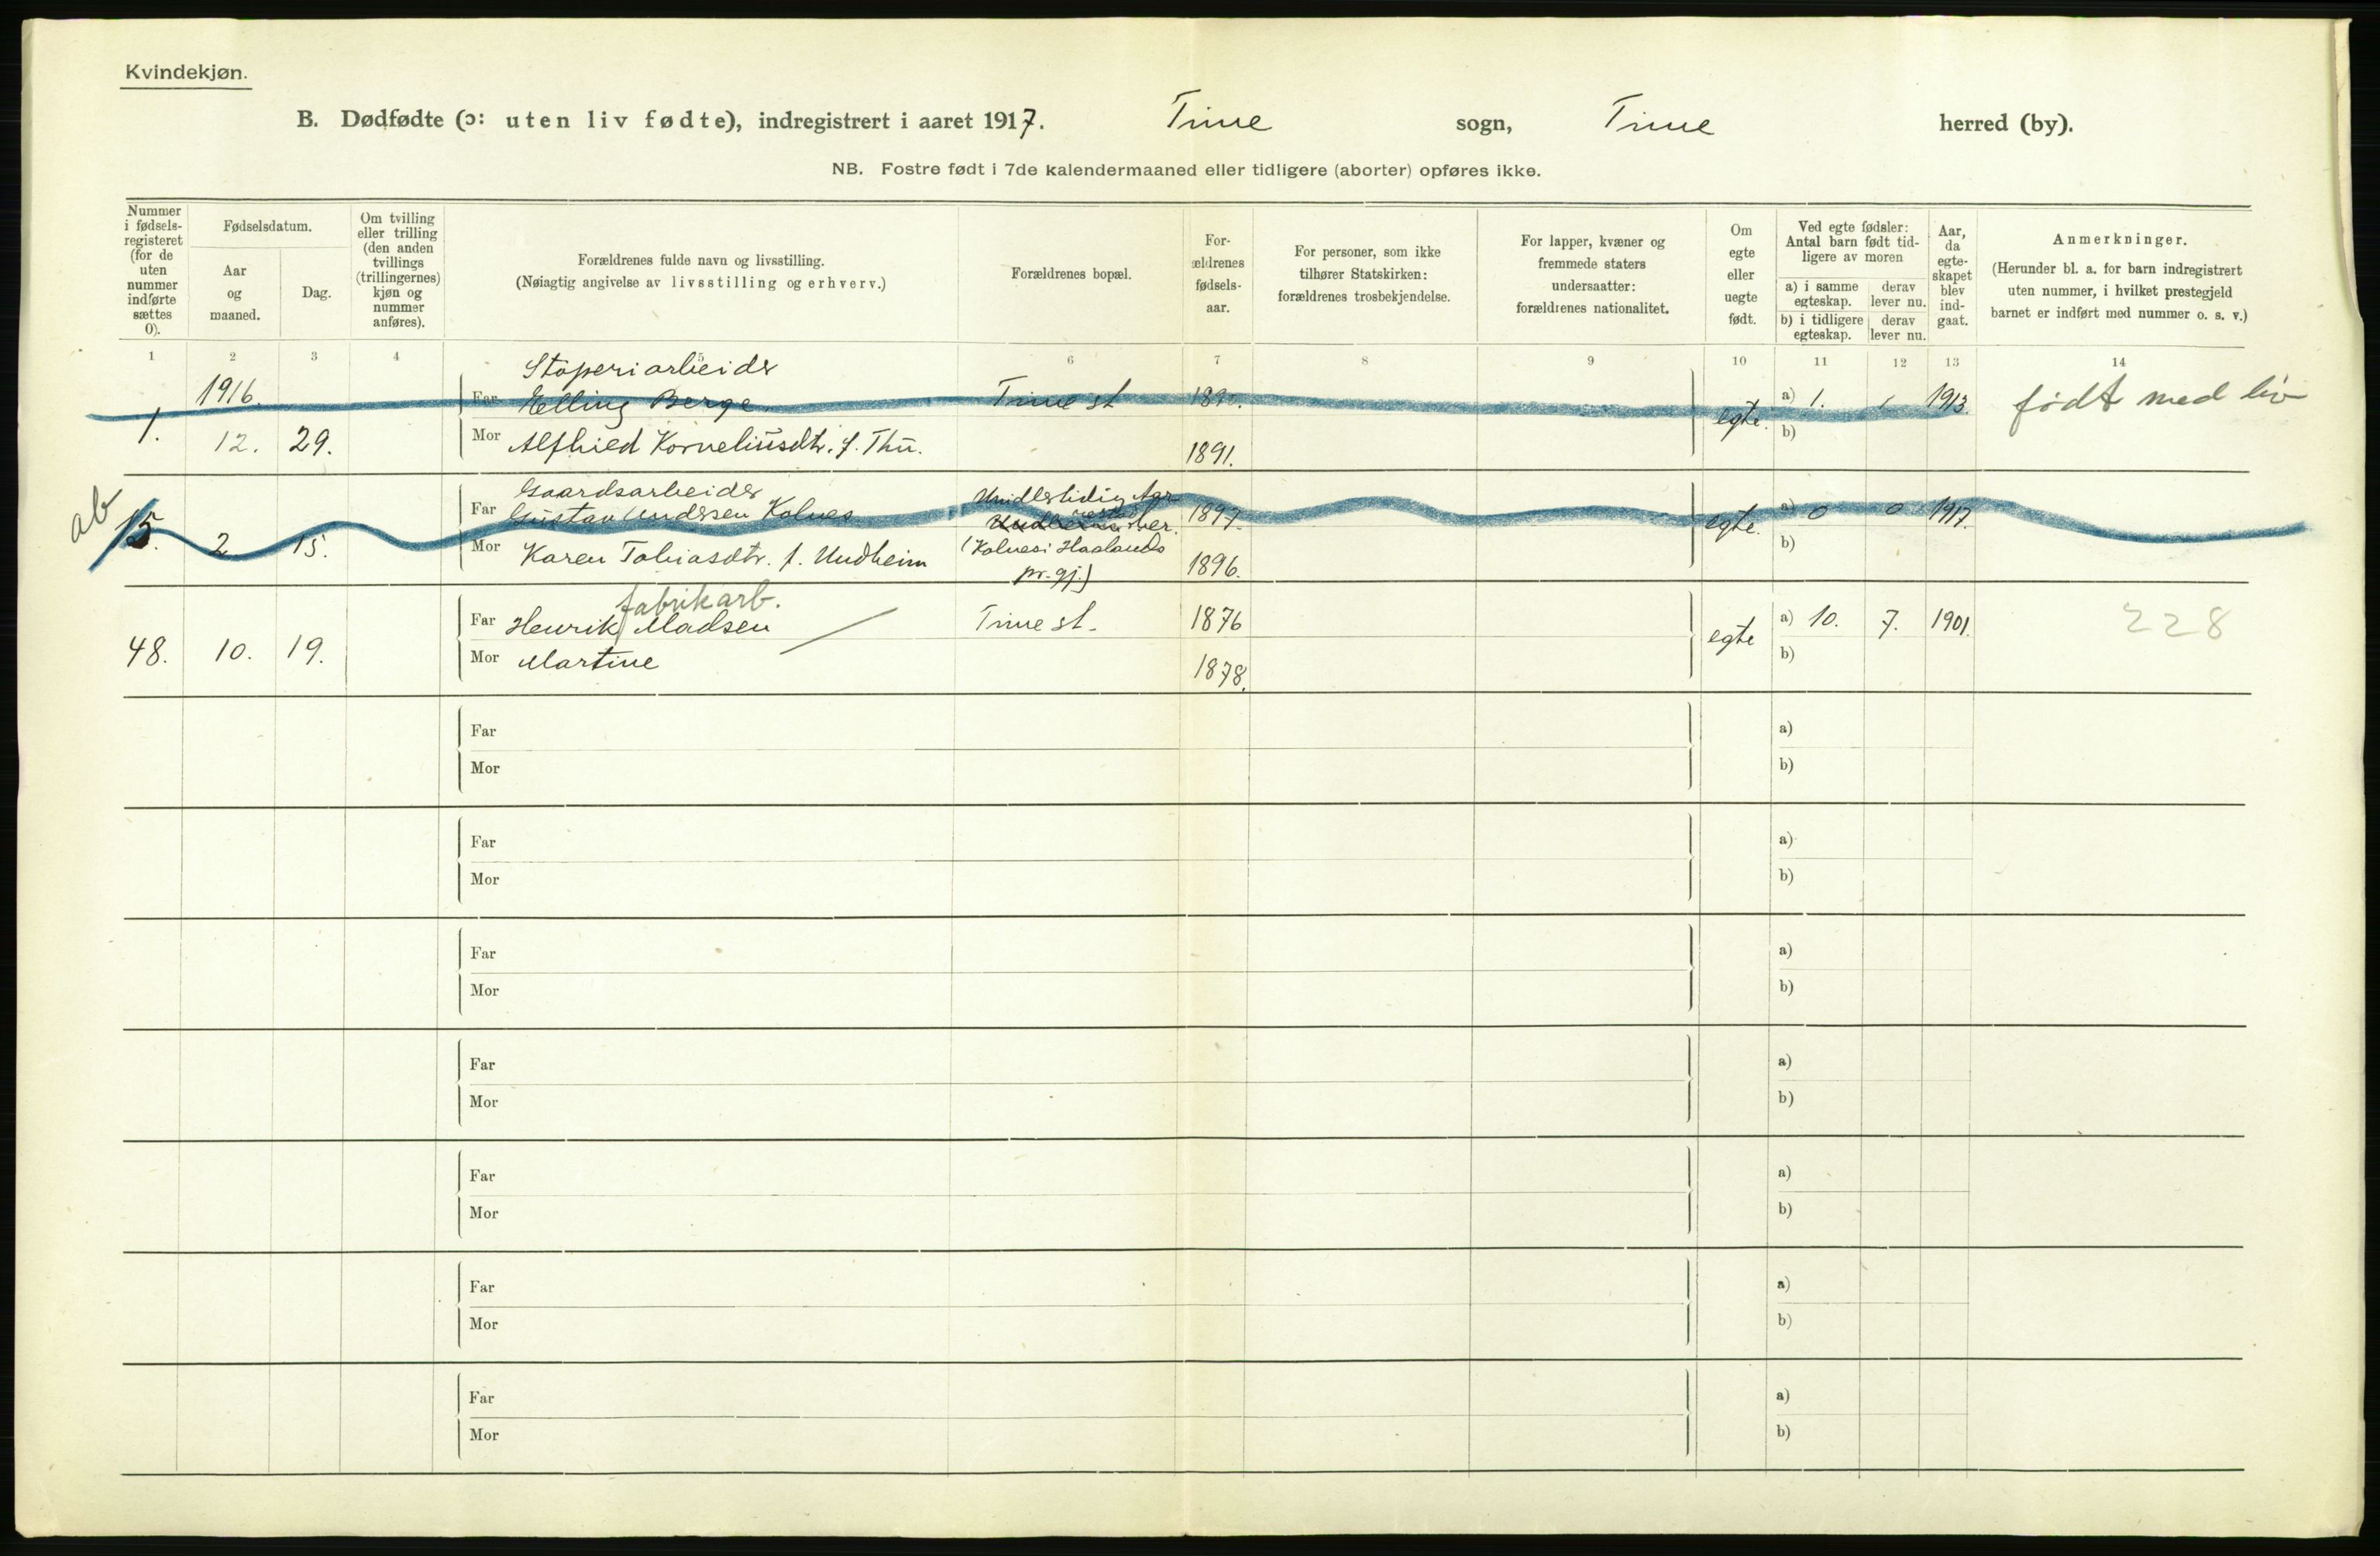 Kvindekjøn.
B. Dødfødte (ɔ: uten liv fødte), indregistrert i aaret 1917. Time sogn, Time herred (by).
NB. Fostre født i 7de kalendermaaned eller tidligere (aborter) opføres ikke.
Nummer i fødsels-registeret (for de uten nummer indførte sættes 0).
Fødselsdatum.
Aar og maaned.
Dag.
Om tvilling eller trilling (den anden tvillings (trillingernes) kjøn og nummer anføres).
Forældrenes fulde navn og livsstilling.
(Nøiagtig angivelse av livsstilling og erhverv.)
Forældrenes bopæl.
For-ældrenes fødsels-aar.
For personer, som ikke tilhører Statskirken: forældrenes trosbekjendelse.
For lapper, kvæner og fremmede staters undersaatter: forældrenes nationalitet.
Om egte eller uegte født.
Ved egte fødsler: Antal barn født tid-ligere av moren
a) i samme egteskap.
derav lever nu.
b) i tidligere egteskap.
derav lever nu.
Aar, da egte-skapet blev ind-gaat.
Anmerkninger.
(Herunder bl. a. for barn indregistrert uten nummer, i hvilket prestegjeld barnet er indført med nummer o. s. v.)
1 2 3 4 5 6 7 8 9 10 11 12 13 14
Støperiarbeider
1916. Far Elling Berge. Time st a) 1. 1 1913. født med liv
1. 12. 29. Mor Alfhied Korneliusdtr. f. Thu. 1891. egte. b)
Gaardsarbeider
ab 15. 2 15. Far Gustav Andersen Kolnes 1897. egte. a) 0 0 1917.
Mor Karen Tobiasdtr. f. Undheim (Kolnes i Haalands pr.gj.) 1896. b)
fabrikarb.
48. 10. 19. Far Henrik Madsen Time st. 1876 egte a) 10. 7. 1901. 228
Mor Martine 1878. b)
Far a)
Mor b)
Far a)
Mor b)
Far a)
Mor b)
Far a)
Mor b)
Far a)
Mor b)
Far a)
Mor b)
Far a)
Mor b)